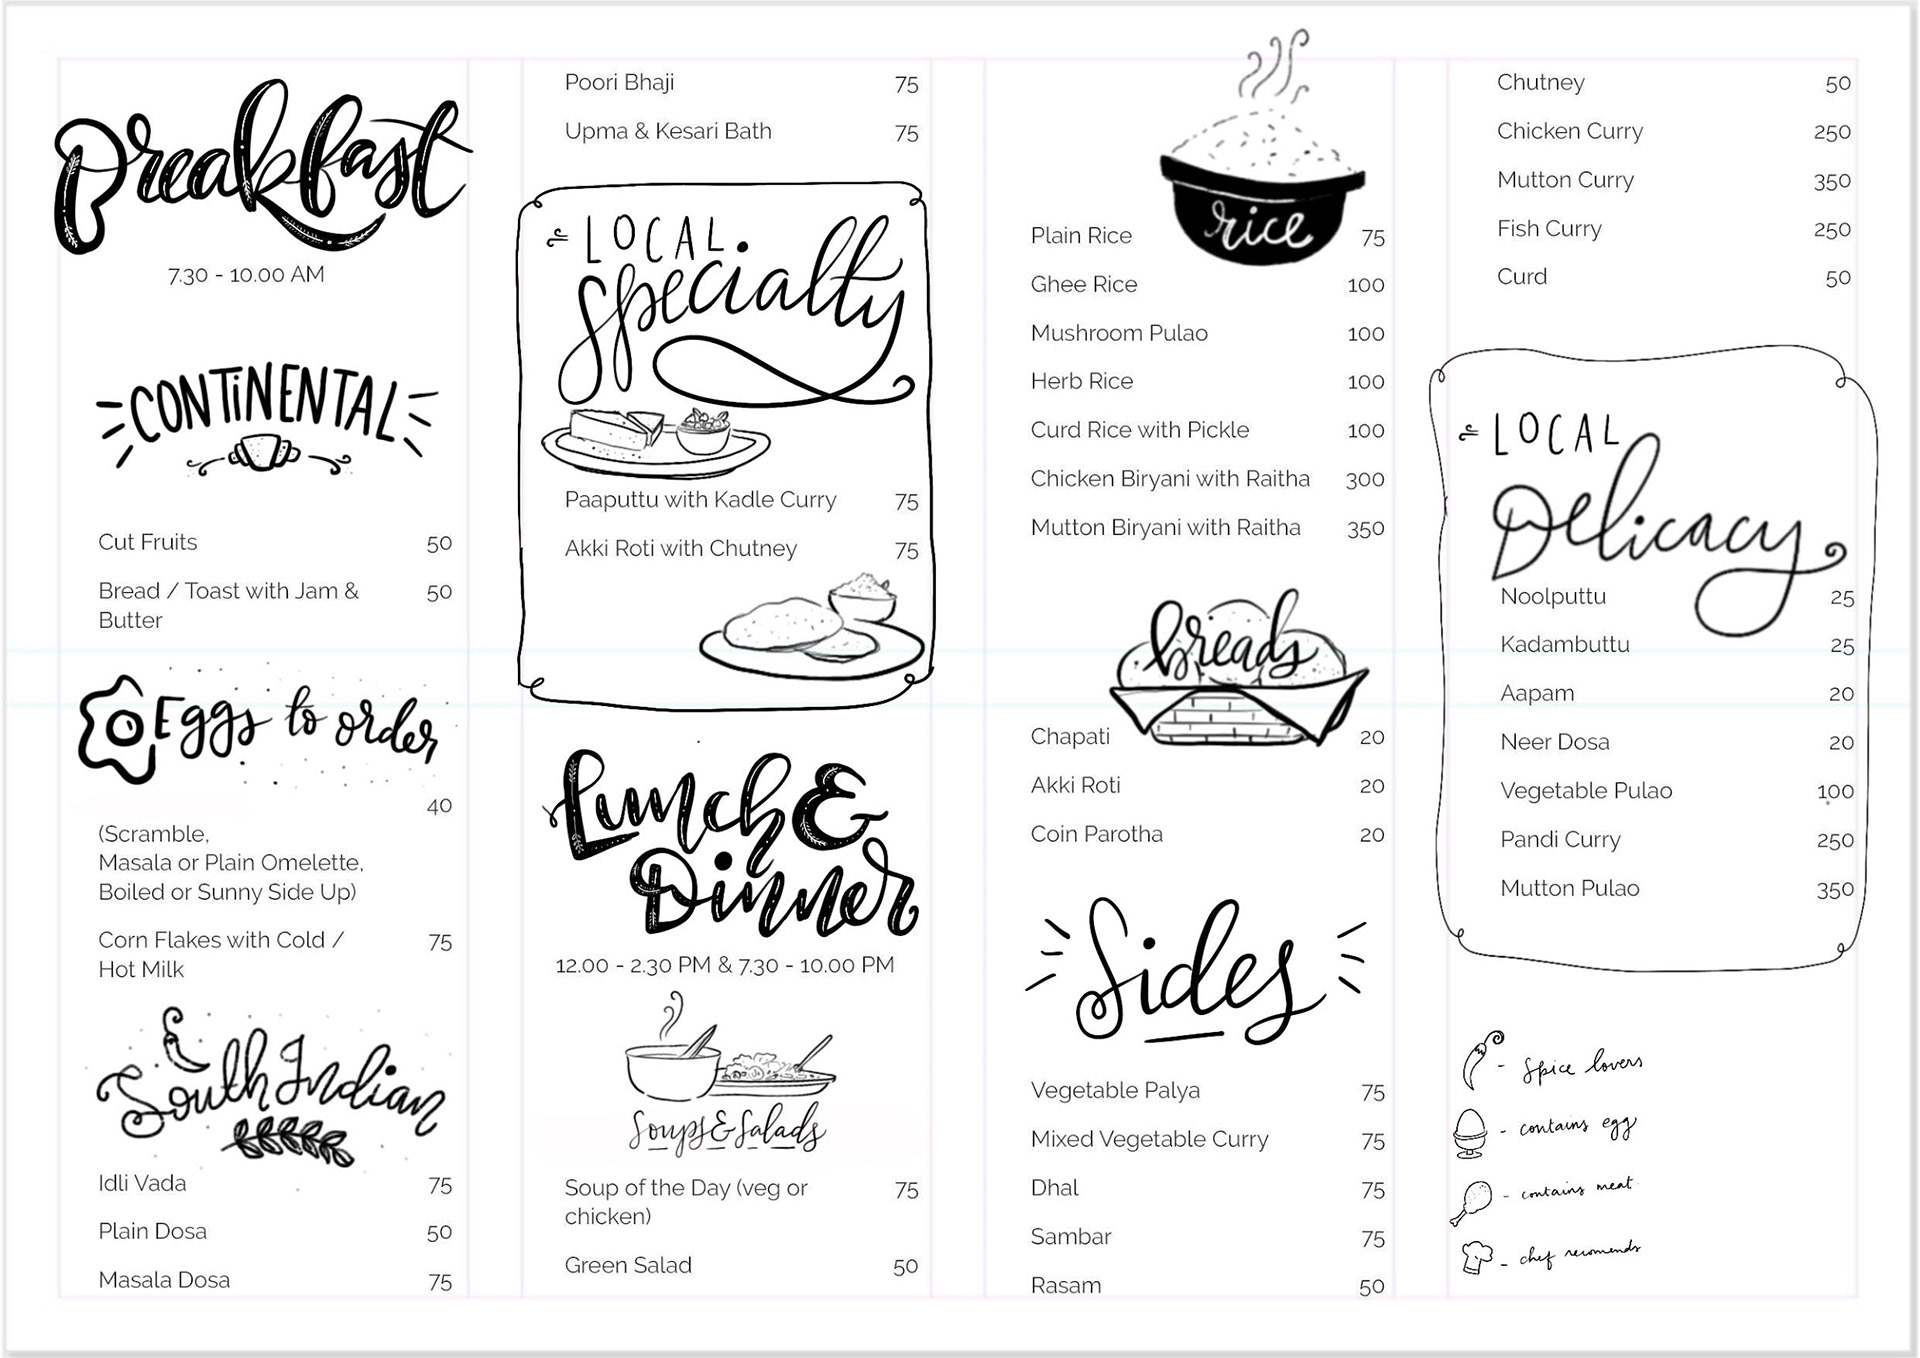 Breakfast
7.30 - 10.00 AM
CONTiNENTAL
Cut Fruits 50
Bread / Toast with Jam & 50
Butter
Eggs to order
40
(Scramble,
Masala or Plain Omelette,
Boiled or Sunny Side Up)
Corn Flakes with Cold / 75
Hot Milk
South Indian
Idli Vada 75
Plain Dosa 50
Masala Dosa 75
Poori Bhaji 75
Upma & Kesari Bath 75
LOCAL
Specialty
Paaputtu with Kadle Curry 75
Akki Roti with Chutney 75
Lunch &
Dinner
12.00 - 2.30 PM & 7.30 - 10.00 PM
Soups & Salads
Soup of the Day (veg or 75
chicken)
Green Salad 50
rice
Plain Rice 75
Ghee Rice 100
Mushroom Pulao 100
Herb Rice 100
Curd Rice with Pickle 100
Chicken Biryani with Raitha 300
Mutton Biryani with Raitha 350
breads
Chapati 20
Akki Roti 20
Coin Parotha 20
Sides
Vegetable Palya 75
Mixed Vegetable Curry 75
Dhal 75
Sambar 75
Rasam 50
Chutney 50
Chicken Curry 250
Mutton Curry 350
Fish Curry 250
Curd 50
LOCAL
Delicacy
Noolputtu 25
Kadambuttu 25
Aapam 20
Neer Dosa 20
Vegetable Pulao 100
Pandi Curry 250
Mutton Pulao 350
- Spice lovers
- contains egg
- contains meat
- chef recomends